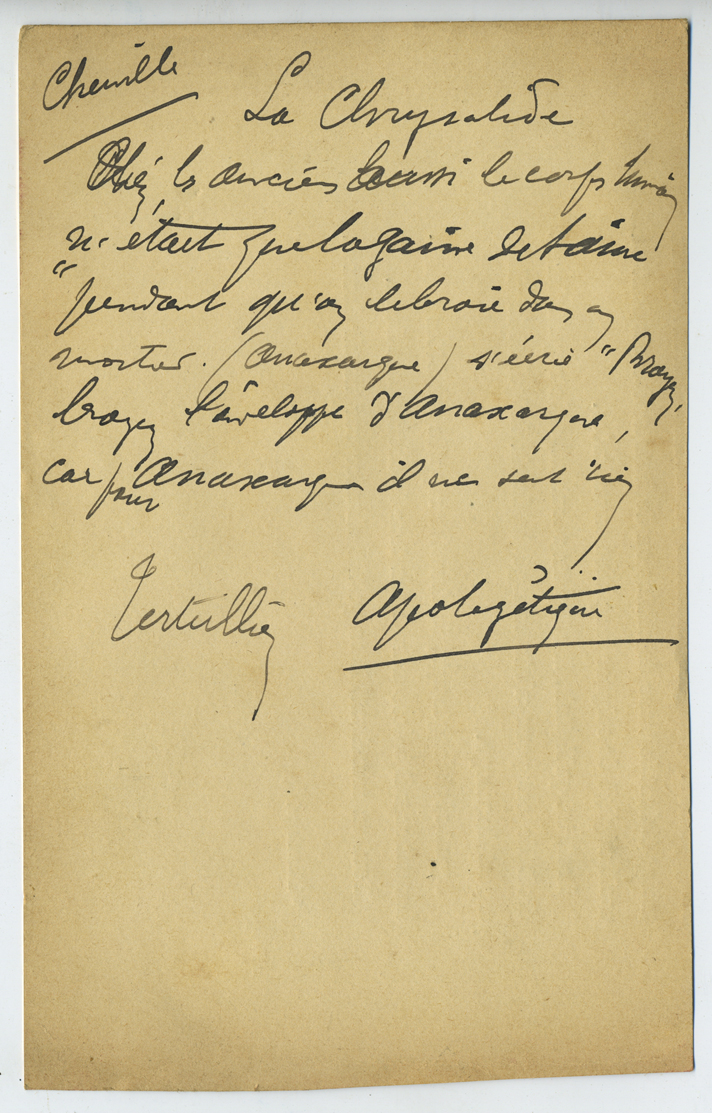 Chenille
La Chrysalide
Chez les anciens aussi le corps humain
n'était que la gaine de l'âme
"pendant qu'on le broie dans un
mortier. (Anaxarque) s'écrie "Broyez,
broyez l'enveloppe d'Anaxarque,
car pour Anaxarque il ne sent rien
Tertullien Apologétique